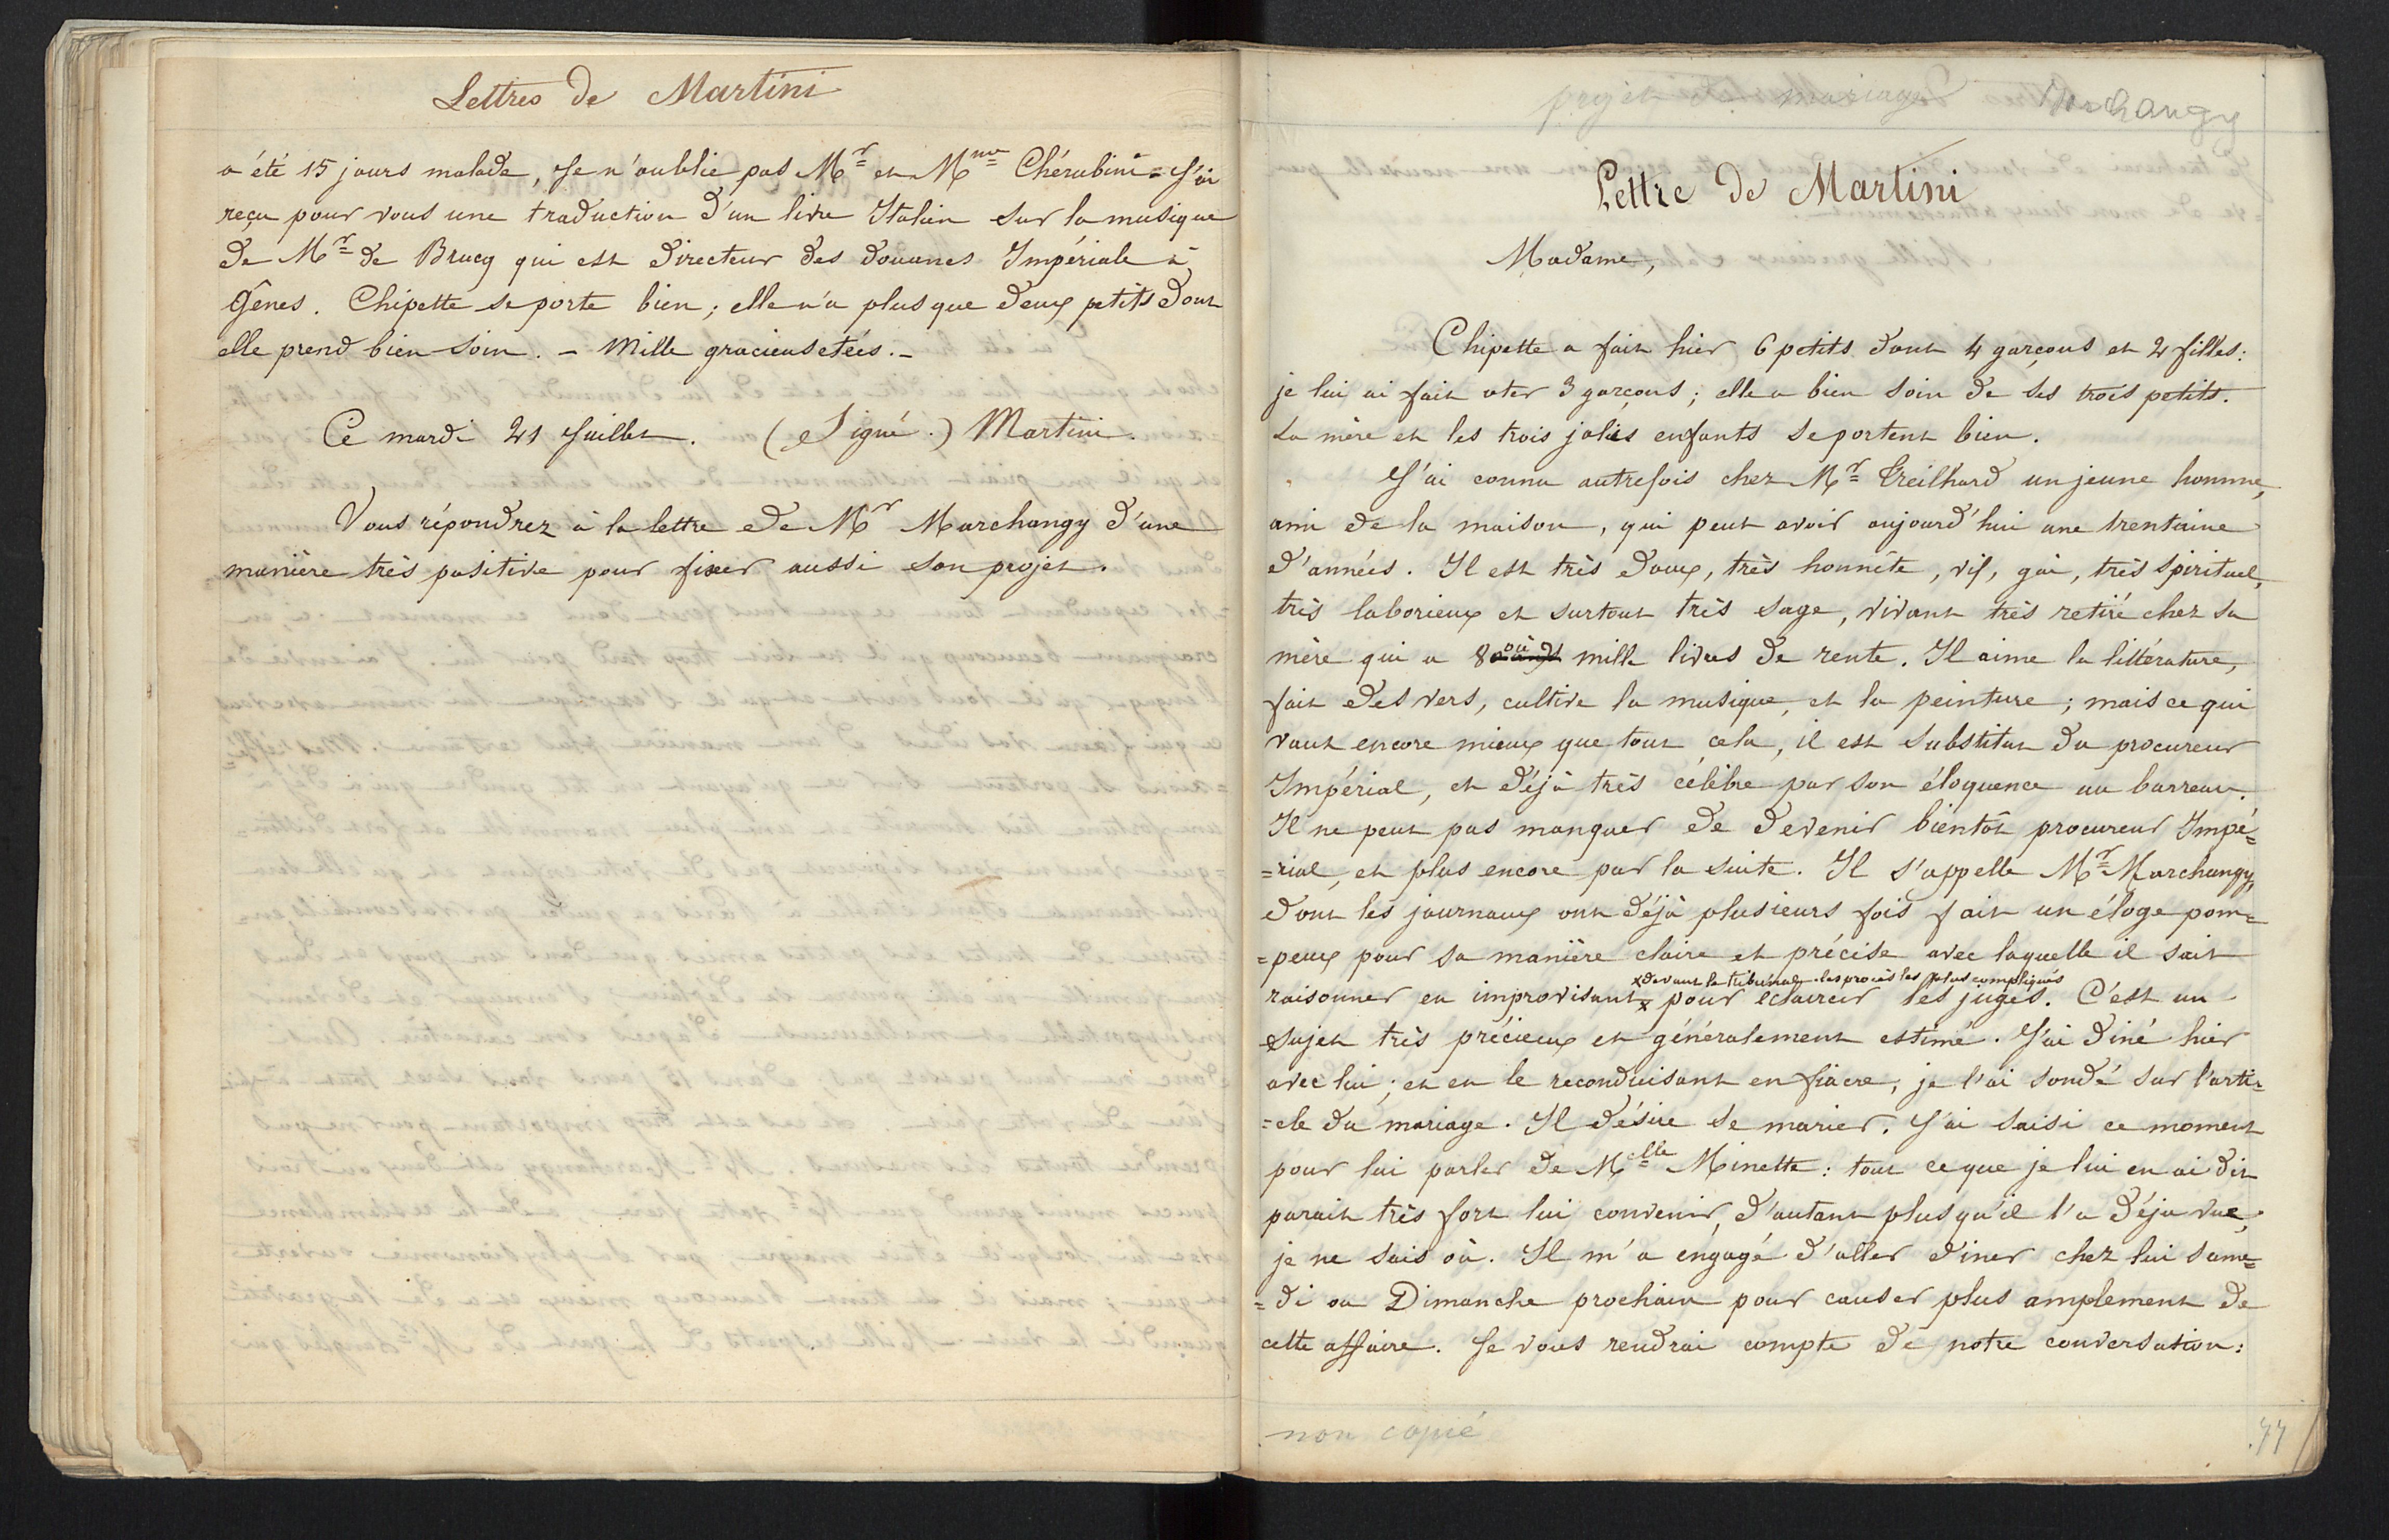 Lettres de Martini
a été 15 jours malade, Je n'oublie pas Mr et Mme Chérubini = J'ai
reçu pour vous une traduction d'un livre Italien sur la musique
de Mr de Brucq qui est directeur des douanes Impériale à
Gênes. Chipette se porte bien; elle n'a plus que deux petits dont
elle prend bien soin. – Mille gracieusetées. –
Ce mardi 21 Juillet. (Signé.) Martini.
Vous répondrez à la lettre de Mr Marchangy d'une
manière très positive pour fixer aussi son projet.
projet de mariage Marchangy
Lettre de Martini
Madame,
Chipette a fait hier 6 petits dont 4 garçons et 2 filles:
je lui ai fait oter 3 garçons; elle a bien soin de ses trois petits.
La mère et les trois jolies enfants se portent bien.
J'ai connu autrefois chez Mr Treilhard un jeune homme,
ami de la maison, qui peut avoir aujourd'hui une trentaine
d'années. Il est très doux, très honnête, vif, gai, très spirituel,
très laborieux et surtout très sage, vivant très retiré chez sa
mère qui a 8 mille livres de rente. Il aime la littérature,
fait des vers, cultive la musique, et la peinture; mais ce qui
vaut encore mieux que tout cela, il est substitut du procureur
Impérial, et déjà très célèbre par son éloquence au barreau.
Il ne peut pas manquer de devenir bientôt procureur Impé=
=rial, et plus encore par la suite. Il s'appelle Mr Marchangy,
dont les journaux ont déjà plusieurs fois fait un éloge pom=
=peux pour sa manière claire et précise avec laquelle il sait
x devant le tribunal les procès les plus compliqués
raisonner en improvisant x pour éclaircir les juges. C'est un
sujet très précieux et généralement estimé. J'ai diné hier
avec lui; et en le reconduisant en fiacre, je l'ai sondé sur l'arti=
=cle du mariage. Il désire se marier. J'ai saisi ce moment
pour lui parler de Melle Minette: tout ce que je lui en ai dit
parait très fort lui convenir, d'autant plus qu'il l'a déja vue,
je ne sais où. Il m'a engagé d'aller diner chez lui same=
=di ou Dimanche prochain pour causer plus amplement de
cette affaire. Je vous rendrai compte de notre conversation:
non copié
77